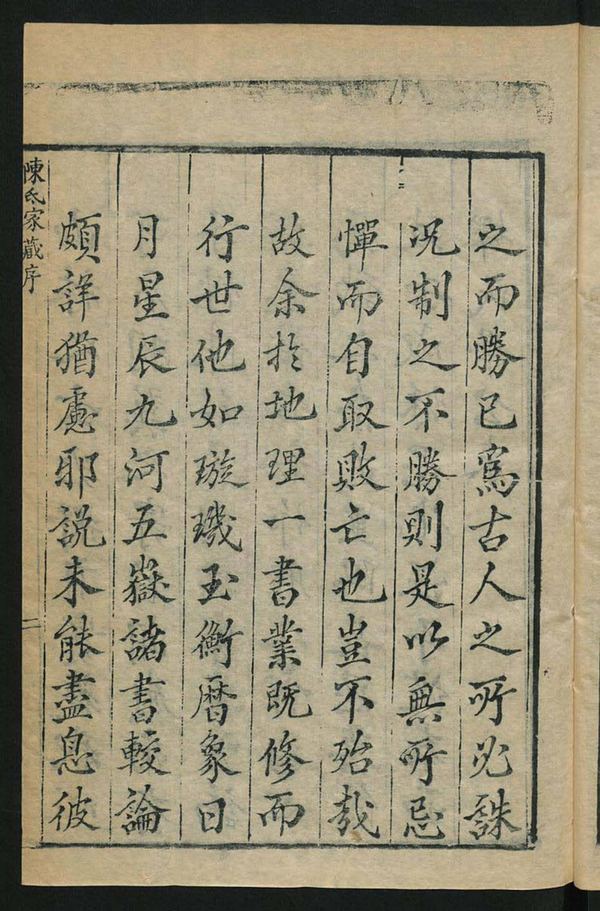 之而勝已爲古人之所必誅
况制之不勝則是以無所忌
憚而自取敗亡也豈不殆哉
故余於地理一書業既修而
行世他如璇璣玉衡曆象日
月星辰九河五嶽諸書較論
頗詳猶慮邪說未能盡息彼
陳氏家藏序
二